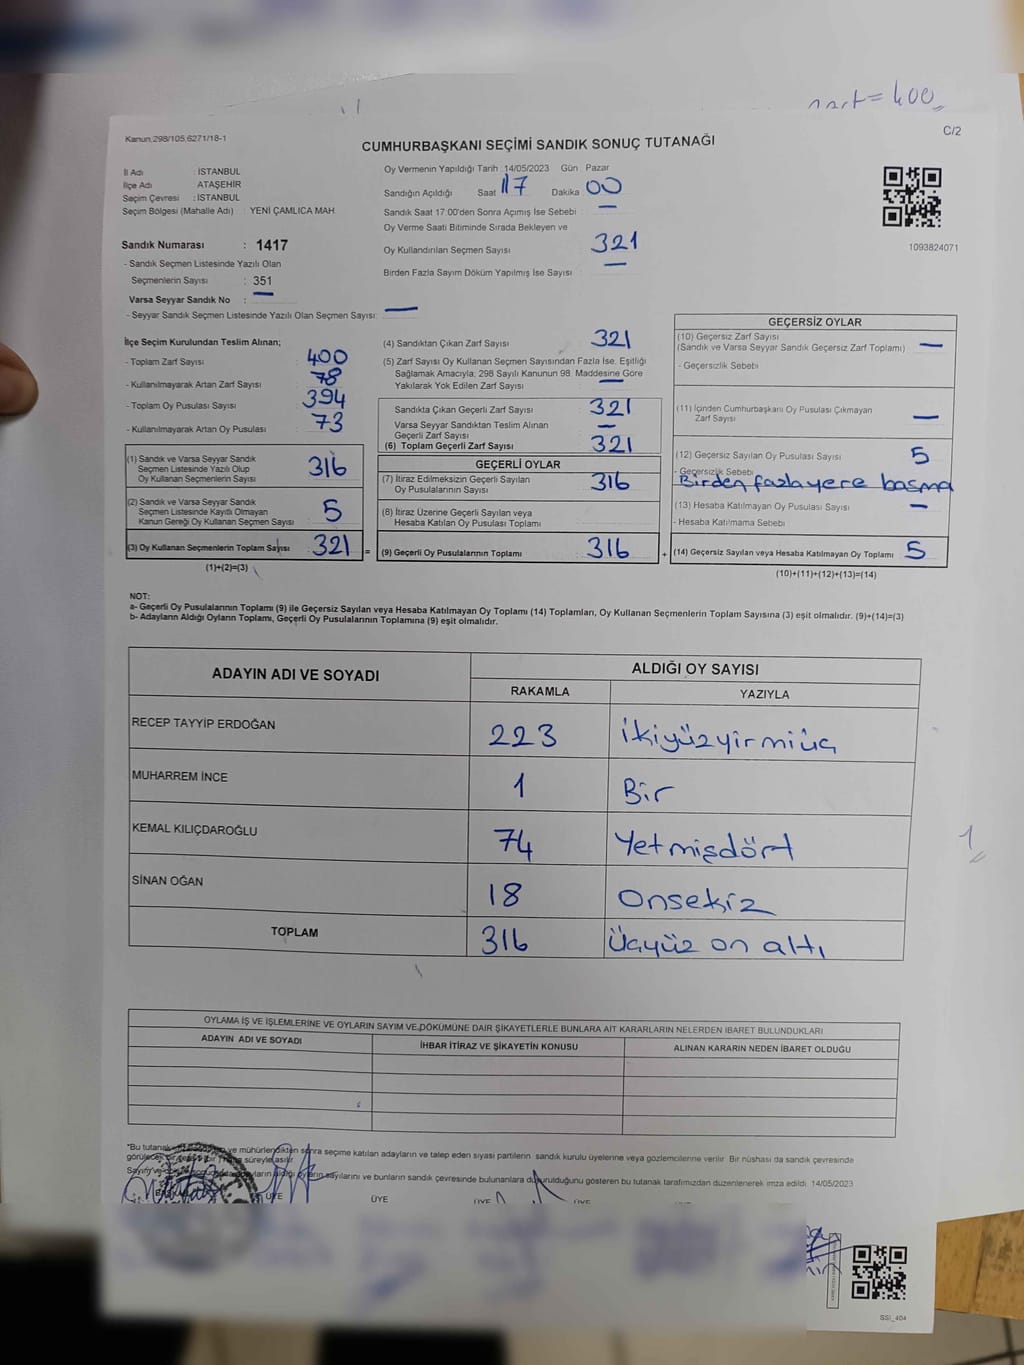 =400
Kanun;298/105;6271/18-1
C/2
CUMHURBAŞKANI SEÇİMİ SANDIK SONUÇ TUTANAĞI
İl Adı İSTANBUL
İlçe Adı ATAŞEHİR
Seçim Çevresi : İSTANBUL
Seçim Bölgesi (Mahalle Adı) : YENİ ÇAMLICA MAH.
Oy Vermenin Yapıldığı Tarih : 14/05/2023 Gün Pazar
Sandığın Açıldığı Saat 17 Dakika 00
Sandık Saat 17:00'den Sonra Açımış İse Sebebi :
Oy Verme Saati Bitiminde Sırada Bekleyen ve
Oy Kullandırılan Seçmen Sayısı 321
Birden Fazla Sayım Döküm Yapılmış İse Sayısı :
1093824071
Sandık Numarası : 1417
- Sandık Seçmen Listesinde Yazılı Olan
Seçmenlerin Sayısı : 351
Varsa Seyyar Sandık No :
- Seyyar Sandık Seçmen Listesinde Yazılı Olan Seçmen Sayısı:
İlçe Seçim Kurulundan Teslim Alınan;
- Toplam Zarf Sayısı 400
- Kullanılmayarak Artan Zarf Sayısı 78
- Toplam Oy Pusulası Sayısı 394
- Kullanılmayarak Artan Oy Pusulası 73
(1) Sandık ve Varsa Seyyar Sandık
Seçmen Listesinde Yazılı Olup
Oy Kullanan Seçmenlerin Sayısı 316
(2) Sandık ve Varsa Seyyar Sandık
Seçmen Listesinde Kayıtlı Olmayan
Kanun Gereği Oy Kullanan Seçmen Sayısı 5
(3) Oy Kullanan Seçmenlerin Toplam Sayısı 321 =
(1)+(2)=(3)
(4) Sandıktan Çıkan Zarf Sayısı 321
(5) Zarf Sayısı Oy Kullanan Seçmen Sayısından Fazla İse, Eşitliği
Sağlamak Amacıyla; 298 Sayılı Kanunun 98. Maddesine Göre
Yakılarak Yok Edilen Zarf Sayısı :
Sandıkta Çıkan Geçerli Zarf Sayısı 321
Varsa Seyyar Sandıktan Teslim Alınan
Geçerli Zarf Sayısı
(6) Toplam Geçerli Zarf Sayısı 321
GEÇERLİ OYLAR
(7) İtiraz Edilmeksizin Geçerli Sayılan
Oy Pusulalarının Sayısı 316
(8) İtiraz Üzerine Geçerli Sayılan veya
Hesaba Katılan Oy Pusulası Toplamı
(9) Geçerli Oy Pusulalarının Toplamı : 316 +
GEÇERSİZ OYLAR
(10) Geçersiz Zarf Sayısı
(Sandık ve Varsa Seyyar Sandık Geçersiz Zarf Toplamı) :
- Geçersizlik Sebebi
(11) İçinden Cumhurbaşkanı Oy Pusulası Çıkmayan
Zarf Sayısı
(12) Geçersiz Sayılan Oy Pusulası Sayısı : 5
- Geçersizlik Sebebi
Birden fazla yere basma
(13) Hesaba Katılmayan Oy Pusulası Sayısı :
- Hesaba Katılmama Sebebi
(14) Geçersiz Sayılan veya Hesaba Katılmayan Oy Toplamı : 5
(10)+(11)+(12)+(13)=(14)
NOT:
a- Geçerli Oy Pusulalarının Toplamı (9) ile Geçersiz Sayılan veya Hesaba Katılmayan Oy Toplamı (14) Toplamları, Oy Kullanan Seçmenlerin Toplam Sayısına (3) eşit olmalıdır. (9)+(14)=(3)
b- Adayların Aldığı Oyların Toplamı, Geçerli Oy Pusulalarının Toplamına (9) eşit olmalıdır.
ADAYIN ADI VE SOYADI ALDIĞI OY SAYISI
RAKAMLA YAZIYLA
RECEP TAYYİP ERDOĞAN 223 ikiyüzyirmiüç
MUHARREM İNCE 1 Bir
KEMAL KILIÇDAROĞLU 74 Yetmişdört
SİNAN OĞAN 18 Onsekiz
TOPLAM 316 Üçyüz on altı
1
OYLAMA İŞ VE İŞLEMLERİNE VE OYLARIN SAYIM VE DÖKÜMÜNE DAİR ŞİKAYETLERLE BUNLARA AİT KARARLARIN NELERDEN İBARET BULUNDUKLARI
ADAYIN ADI VE SOYADI İHBAR İTİRAZ VE ŞİKAYETİN KONUSU ALINAN KARARIN NEDEN İBARET OLDUĞU
*Bu tutanak ve mühürlendikten sonra seçime katılan adayların ve talep eden siyasi partilerin sandık kurulu üyelerine veya gözlemcilerine verilir. Bir nüshası da sandık çevresinde
görülecek bir süreyle asılır.
Sayım ve aldığı oyların sayılarını ve bunların sandık çevresinde bulunanlara duyurulduğunu gösteren bu tutanak tarafımızdan düzenlenerek imza edildi. 14/05/2023
ÜYE ÜYE ÜYE ÜYE
SSİ_404